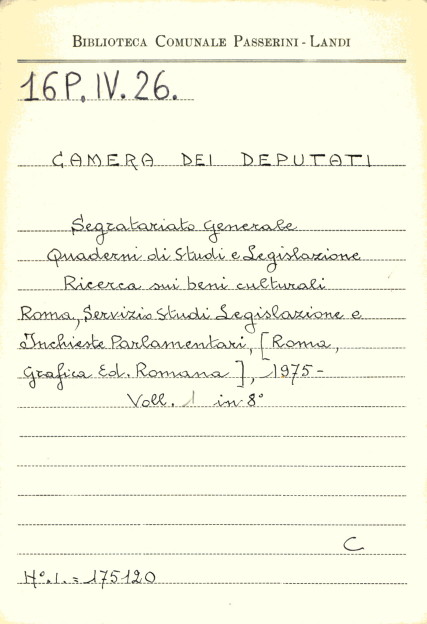 BIBLIOTECA COMUNALE PASSERINI - LANDI
16P.IV.26.
CAMERA DEI DEPUTATI
Segratariato Generale
Quaderni di Studi e Legislazione
Ricerca sui beni culturali
Roma, Servizio Studi Legislazione e
Inchieste Parlamentari, [Roma,
Grafica Ed. Romana], 1975-
Voll. 1 in 8°
C
N°.1.= 175120